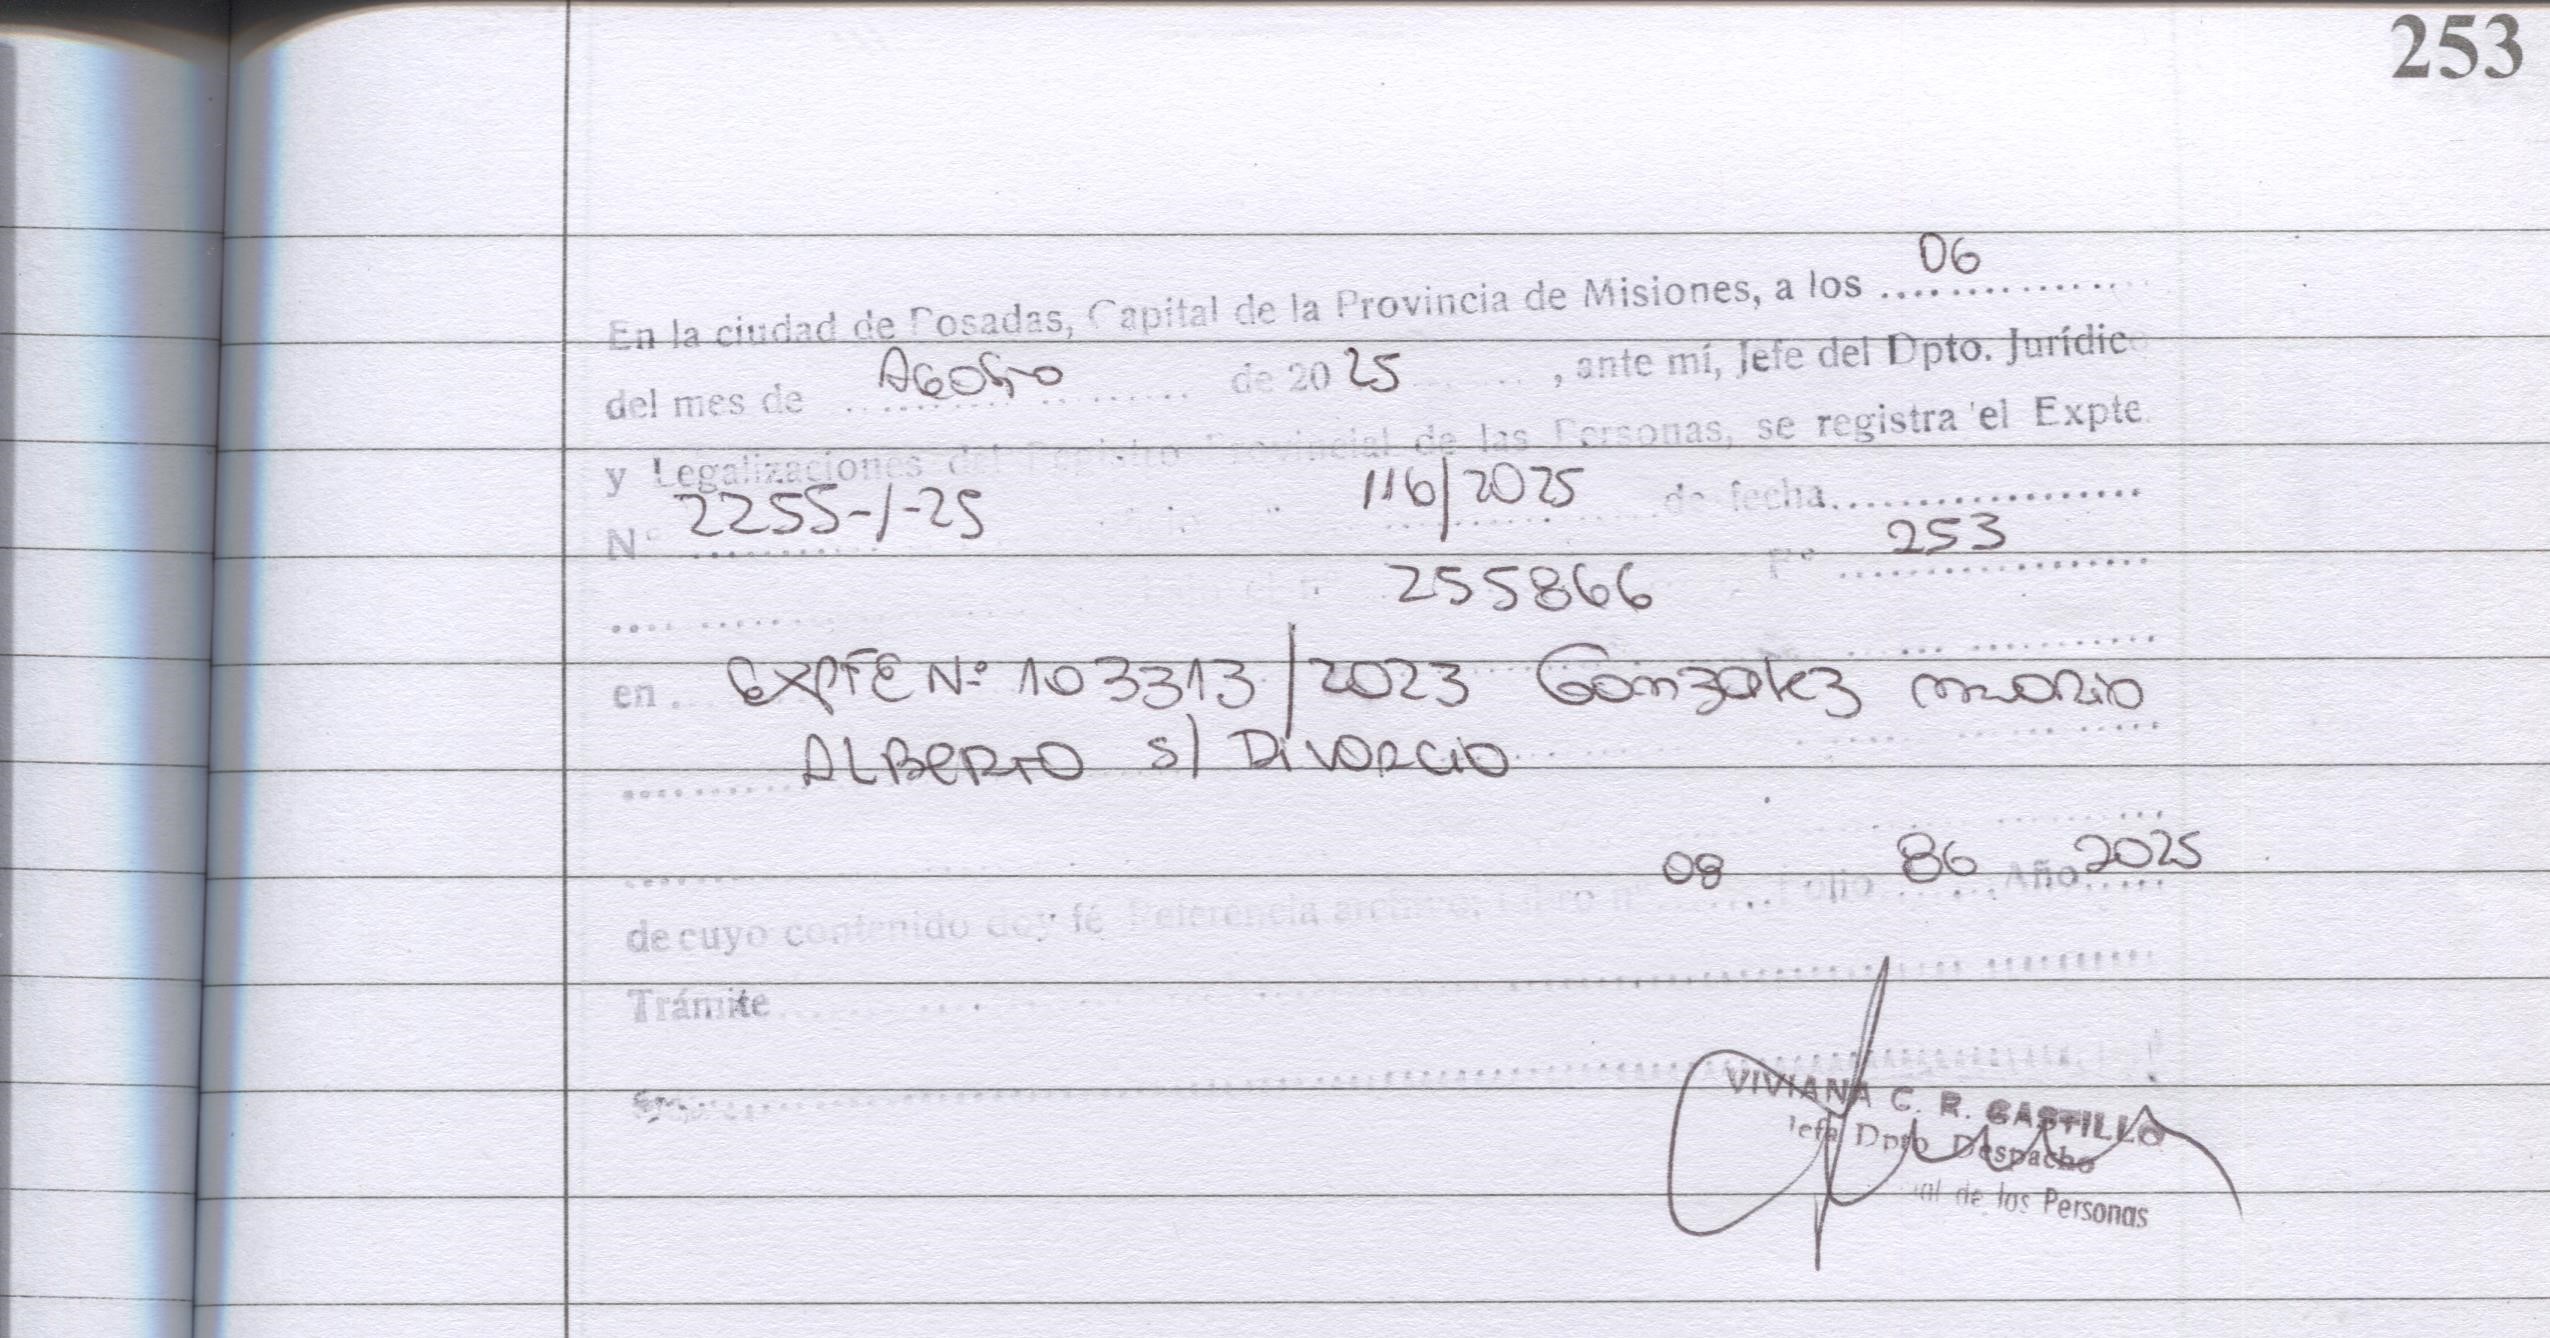 253
En la ciudad de Posadas, Capital de la Provincia de Misiones, a los 06
del mes de Agosto de 2025, ante mí, Jefe del Dpto. Jurídico
y Legalizaciones del Registro Provincial de las Personas, se registra el Expte.
N° 2255-/-25 116/2025 de fecha
255866 F° 253
en EXPTE Nº 103313/2023 Gonzalez Mario
ALBERTO s/ DIVORCIO
de cuyo contenido doy fé Referencia archivo: Libro n° 08 Folio 86 Año 2025
Trámite
VIVIANA C. R. CASTILLO
Jefa Dpto Despacho
de los Personas